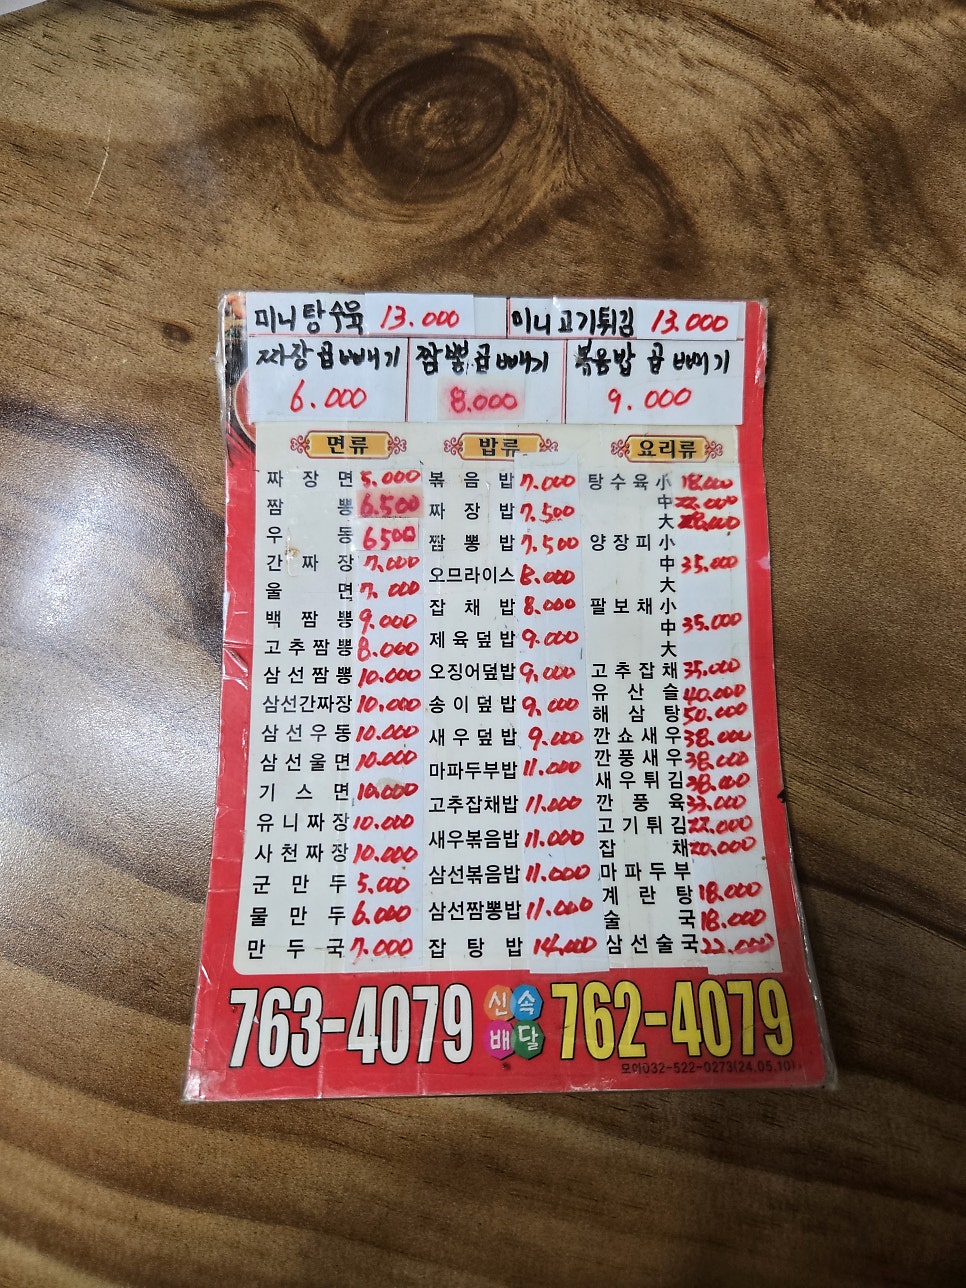 미니탕수육 13.000
미니고기튀김 13.000
짜장곱빼기 6.000
짬뽕곱빼기 8.000
볶음밥 곱빼기 9.000
면류
짜장면 5.000
짬뽕 6.500
우동 6500
간짜장 7.000
울면 7.000
백짬뽕 9.000
고추짬뽕 8.000
삼선짬뽕 10.000
삼선간짜장 10.000
삼선우동 10.000
삼선울면 10.000
기스면 10.000
유니짜장 10.000
사천짜장 10.000
군만두 5.000
물만두 6.000
만두국 7.000
밥류
볶음밥 7.000
짜장밥 7.500
짬뽕밥 7.500
오므라이스 8.000
잡채밥 8.000
제육덮밥 9.000
오징어덮밥 9.000
송이덮밥 9.000
새우덮밥 9.000
마파두부밥 11.000
고추잡채밥 11.000
새우볶음밥 11.000
삼선볶음밥 11.000
삼선짬뽕밥 11.000
잡탕밥 14.000
요리류
탕수육 小 18.000
中 22.000
大
양장피 小
中 35.000
大
팔보채 小
中 35.000
大
고추잡채 35.000
유산슬 40.000
해삼탕 50.000
깐쇼새우 38.000
깐풍새우 38.000
새우튀김 38.000
깐풍육 33.000
고기튀김 22.000
잡채 20.000
마파두부
계란탕 18.000
술국 18.000
삼선술국 22.000
763-4079
신속배달
762-4079
모아032-522-0273(24.05.10)